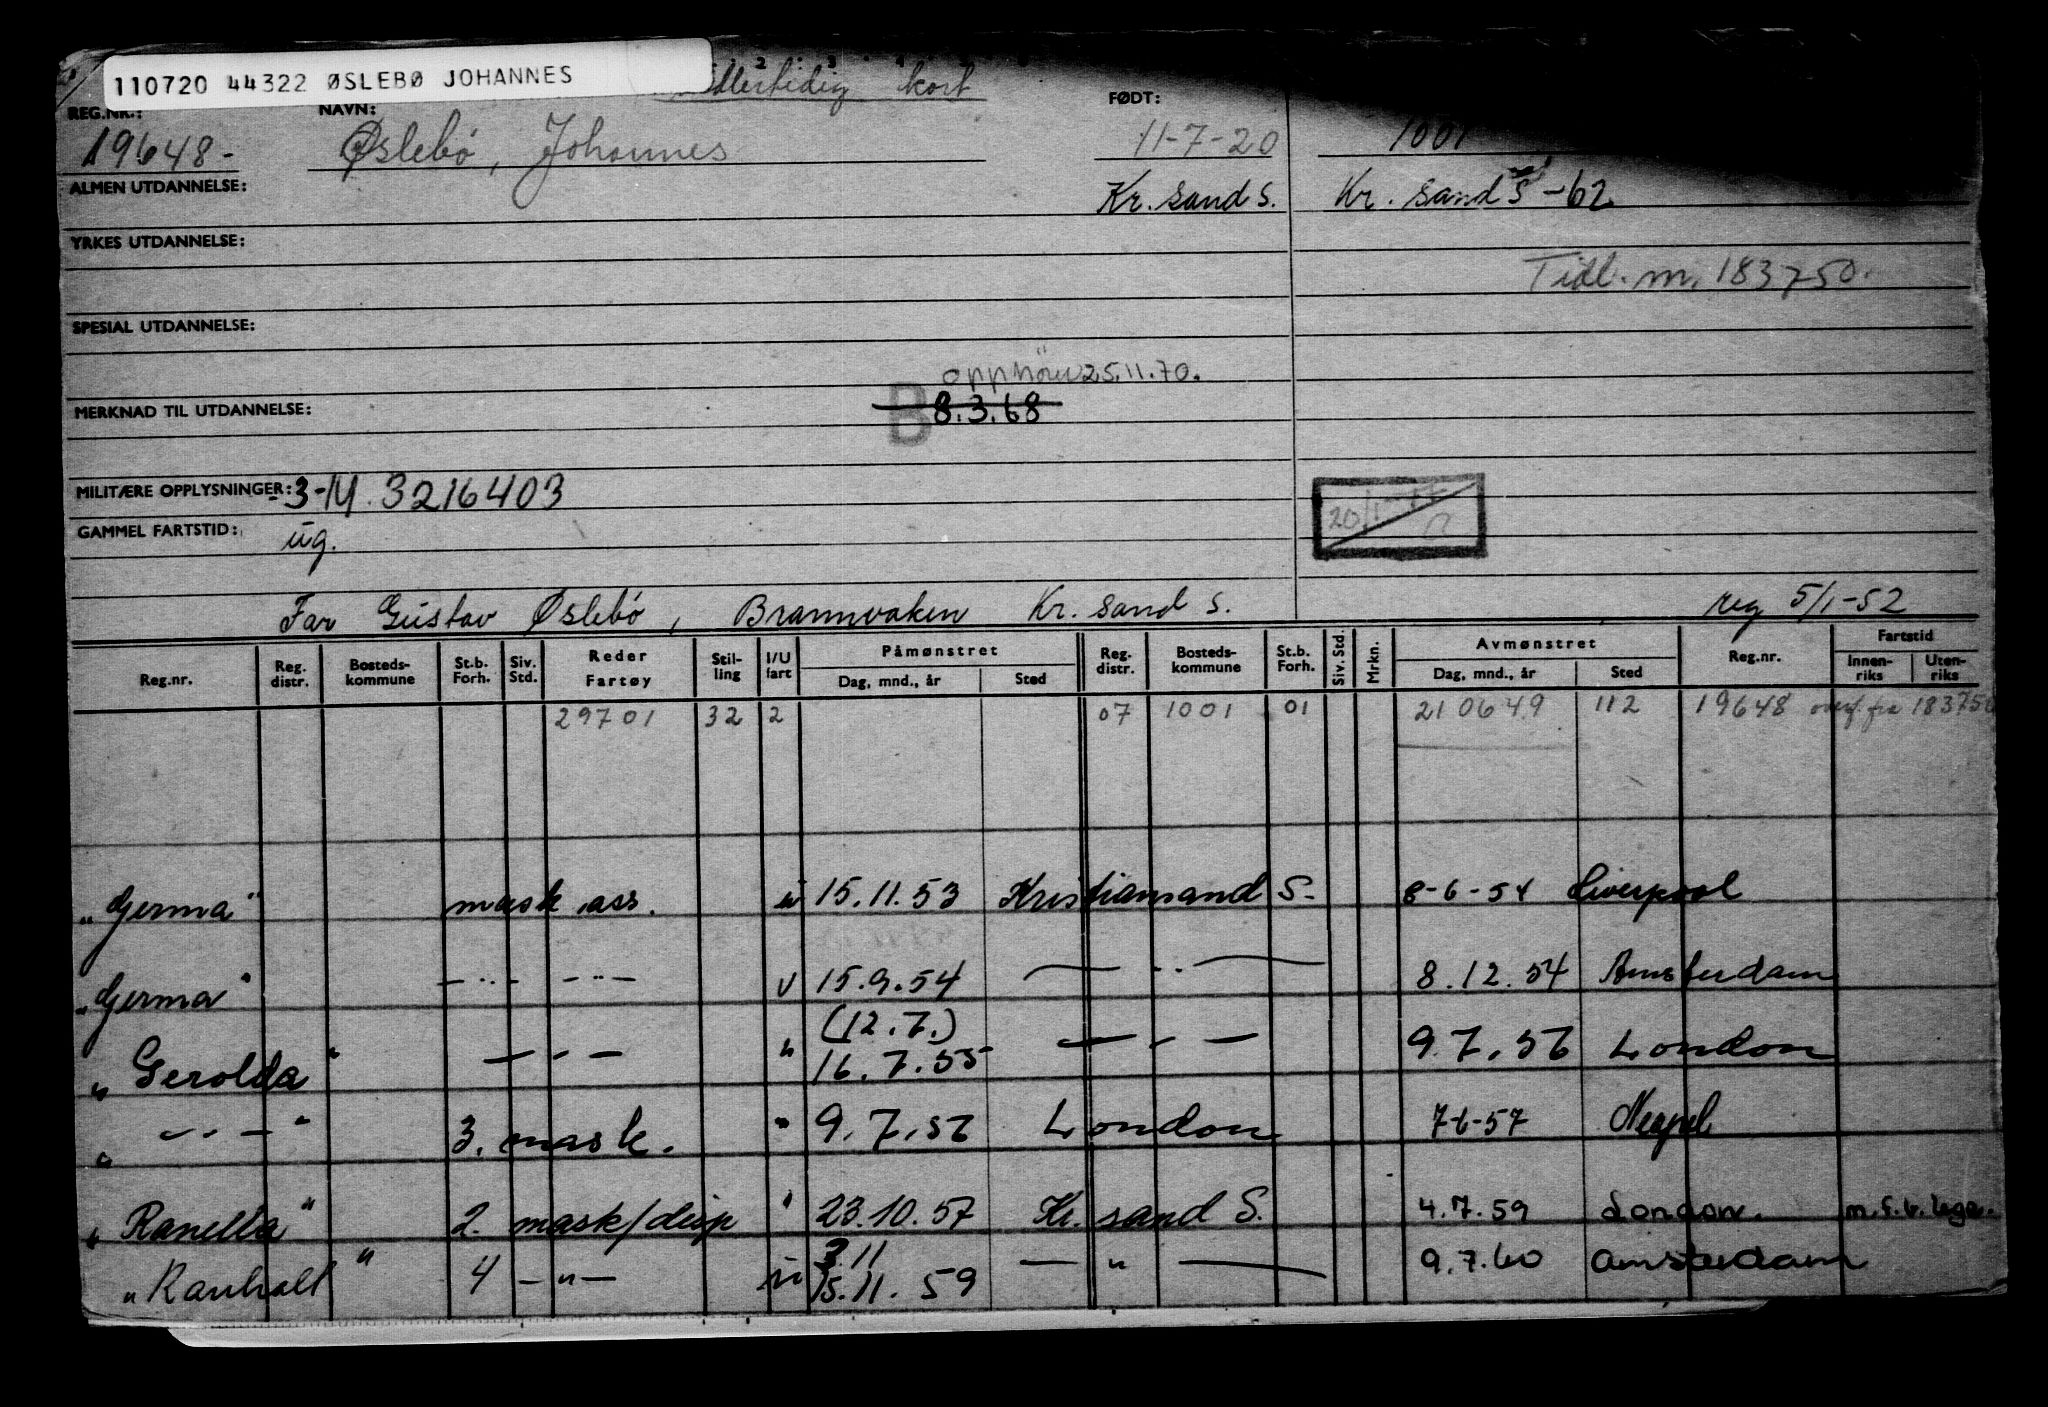 110720 44322 ØSLEBØ JOHANNES
kort
REG.NR.: NAVN: FØDT:
19648- Øslebø, Johannes 11-7-20 1001
ALMEN UTDANNELSE: Kr. sand S. Kr. sand S -62
YRKES UTDANNELSE:
Tidl. m. 183750.
SPESIAL UTDANNELSE:
opphører 25.11.70.
MERKNAD TIL UTDANNELSE: B 8.3.68
MILITÆRE OPPLYSNINGER: 3-M. 3216403
20/1
GAMMEL FARTSTID: ug.
Far Gustav Øslebø, Brannvakten Kr. sand S. reg 5/1-52
Reg.nr. Reg. distr. Bosteds- kommune St.b. Forh. Siv. Std. Reder Fartøy Stil- ling I/U fart Påmønstret Dag, mnd., år Sted Reg. distr. Bosteds- kommune St.b. Forh. Siv. Std. Mrkn. Avmønstret Dag, mnd., år Sted Reg.nr. Fartstid Innen- riks Uten- riks
29701 32 2 07 1001 01 210649 112 19648 overf. fra 183750
"Germa" mask.ass. u 15.11.53 Kristiansand S. 8-6-54 Liverpool
"Germa" -"- -"- u 15.9.54 -"- 8.12.54 Amsterdam
(12.7.)
"Gerolda" -"- " 16.7.55 -"- 9.7.56 London
" -"- " 3. mask. " 9.7.56 London 7-6-57 Neapel
"Ranella" 2. mask/disp " 23.10.57 Kr. sand S. 4.7.59 London. m.s.v. lege.
3.11
"Ranholt" 4 -"- u 15.11.59 -"- 9.7.60 Amsterdam